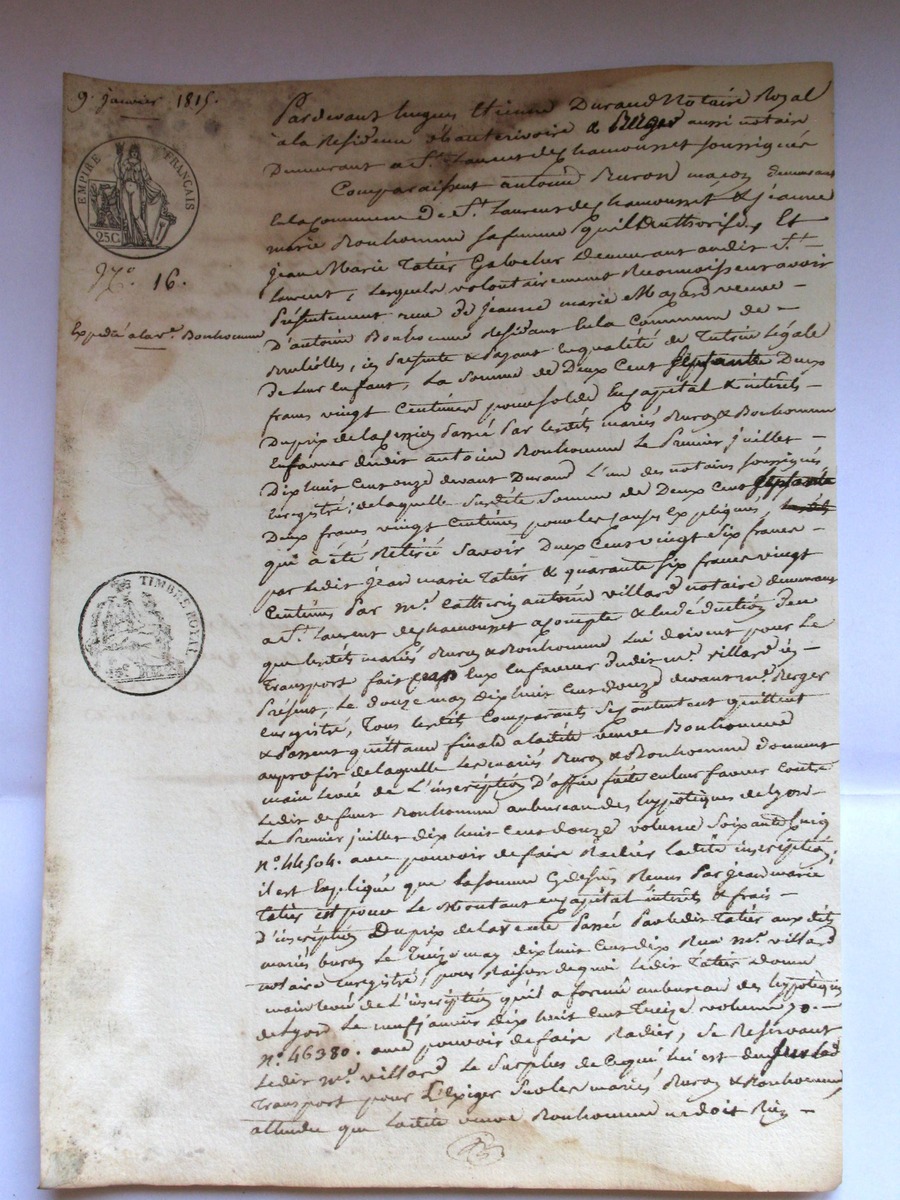 9. janvier 1815.
EMPIRE FRANÇAIS
25C
N.º 16.
Expédié à la v.e Bonhomme
TIMBRE ROYAL
Pardevant hugues Etienne Durand Notaire Royal
à la Résidence d'hauterivoire & Berger aussi notaire
Demeurant a S.t Laurent de chamousset soussignés
Comparaissent antoine Buron maçon demeurant
en la commune de S.t Laurent de chamousset & jeanne
marie Bonhomme sa femme qu'il authorise, Et
jean Marie Tatier Demeurant audit S.t
Laurent, lesquels volontairement Reconnoissent avoir
Présentement reçu de jeanne marie Mazard veuve
D'antoine Bonhomme Résidant en la Commune de
Brullolles, ici Présente & Payant en qualité de Tutrice légale
de leur enfant, la somme de Deux Cent septante Deux
francs vingt Centimes pour solde en capital & intérêts
Du prix de la cession Passée Par lesdits mariés Buron & Bonhomme
en faveur dudit antoine Bonhomme Le Premier juillet
Dix huit Cent onze devant Durand L'un des notaires soussignés
Enregistré; de laquelle Susdite Somme de Deux Cent septante
Deux francs vingt Centimes pour les causes Expliquées,
qui a été Retirée Savoir Deux Cent vingt Six francs
par ledit jean marie Tatier & quarante Six francs vingt
Centimes Par m.e Catherin antoine villard notaire demeurant
a S.t Laurent de chamousset a compte & en déduction de ce
que lesdits mariés Buron & Bonhomme lui doivent pour le
Transport fait par eux en faveur dudit m.e villard ici
Présent, Le douze may Dix huit Cent douze devant m.e Berger
enregistré, Tous lesdits Comparants se contentent quittent
& Passent quittance finale a ladite veuve Bonhomme
au profit de laquelle les mariés Buron & Bonhomme donnent
main levée de L'inscription D'office faite en leur faveur contre
ledit défunt Bonhomme au bureau des hypotèques de Lyon
Le Premier juillet dix huit Cent douze volume Soixante Cinq
N.º 44504. avec pouvoir de faire Radier ladite inscription;
il est Expliqué que la somme cy dessus Reçue Par jean marie
Tatier est pour le Montant en capital intérêts & frais
d'inscription Du prix de la vente Passée Par ledit Tatier aux dits
mariés buron Le Treize may dix huit Cent dix Reçu m.e villard
notaire Enregistré, pour Raison de quoi ledit Tatier donne
main levée de L'inscription qu'il a formé au bureau des hypotèques
de Lyon Le neuf janvier Dix huit Cent Treize volume 70.
N.º 46380. avec pouvoir de faire Radier, se Réservant
ledit m.e villard Le Surplus de ce qui lui est du sur led.
Transport pour L'exiger sur les mariés Buron & Bonhomme
attendu que ladite veuve Bonhomme ne doit Rien